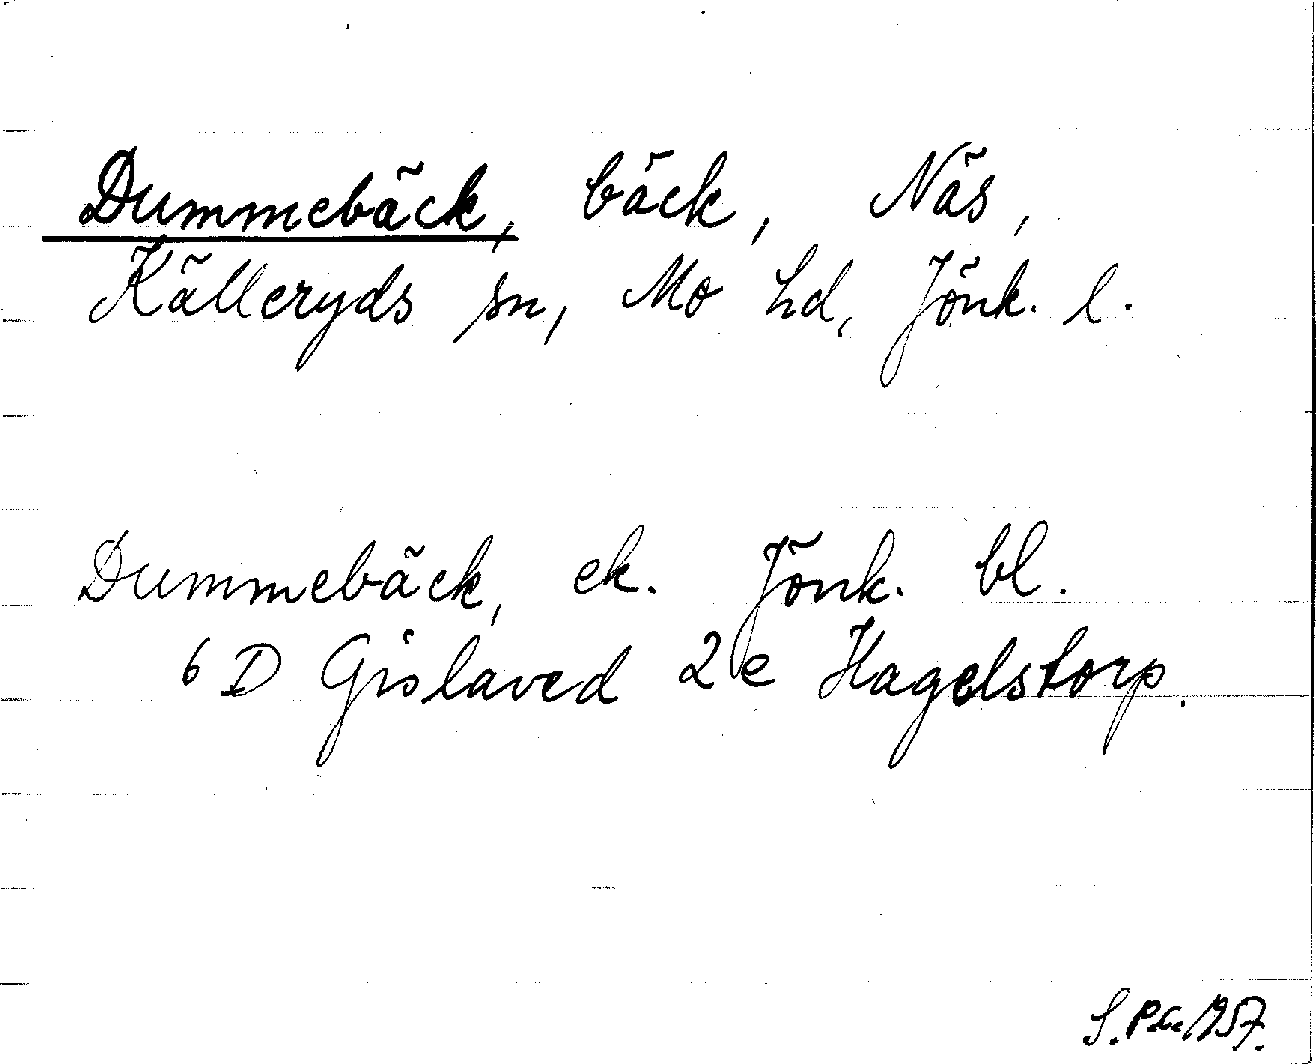 Dummebäck, bäck, Näs,
Källeryds sn, Mo hd, Jönk. l.
Dummebäck, ek. Jönk. bl.
6 D Gislaved 2 e Hagelstorp.
1957.